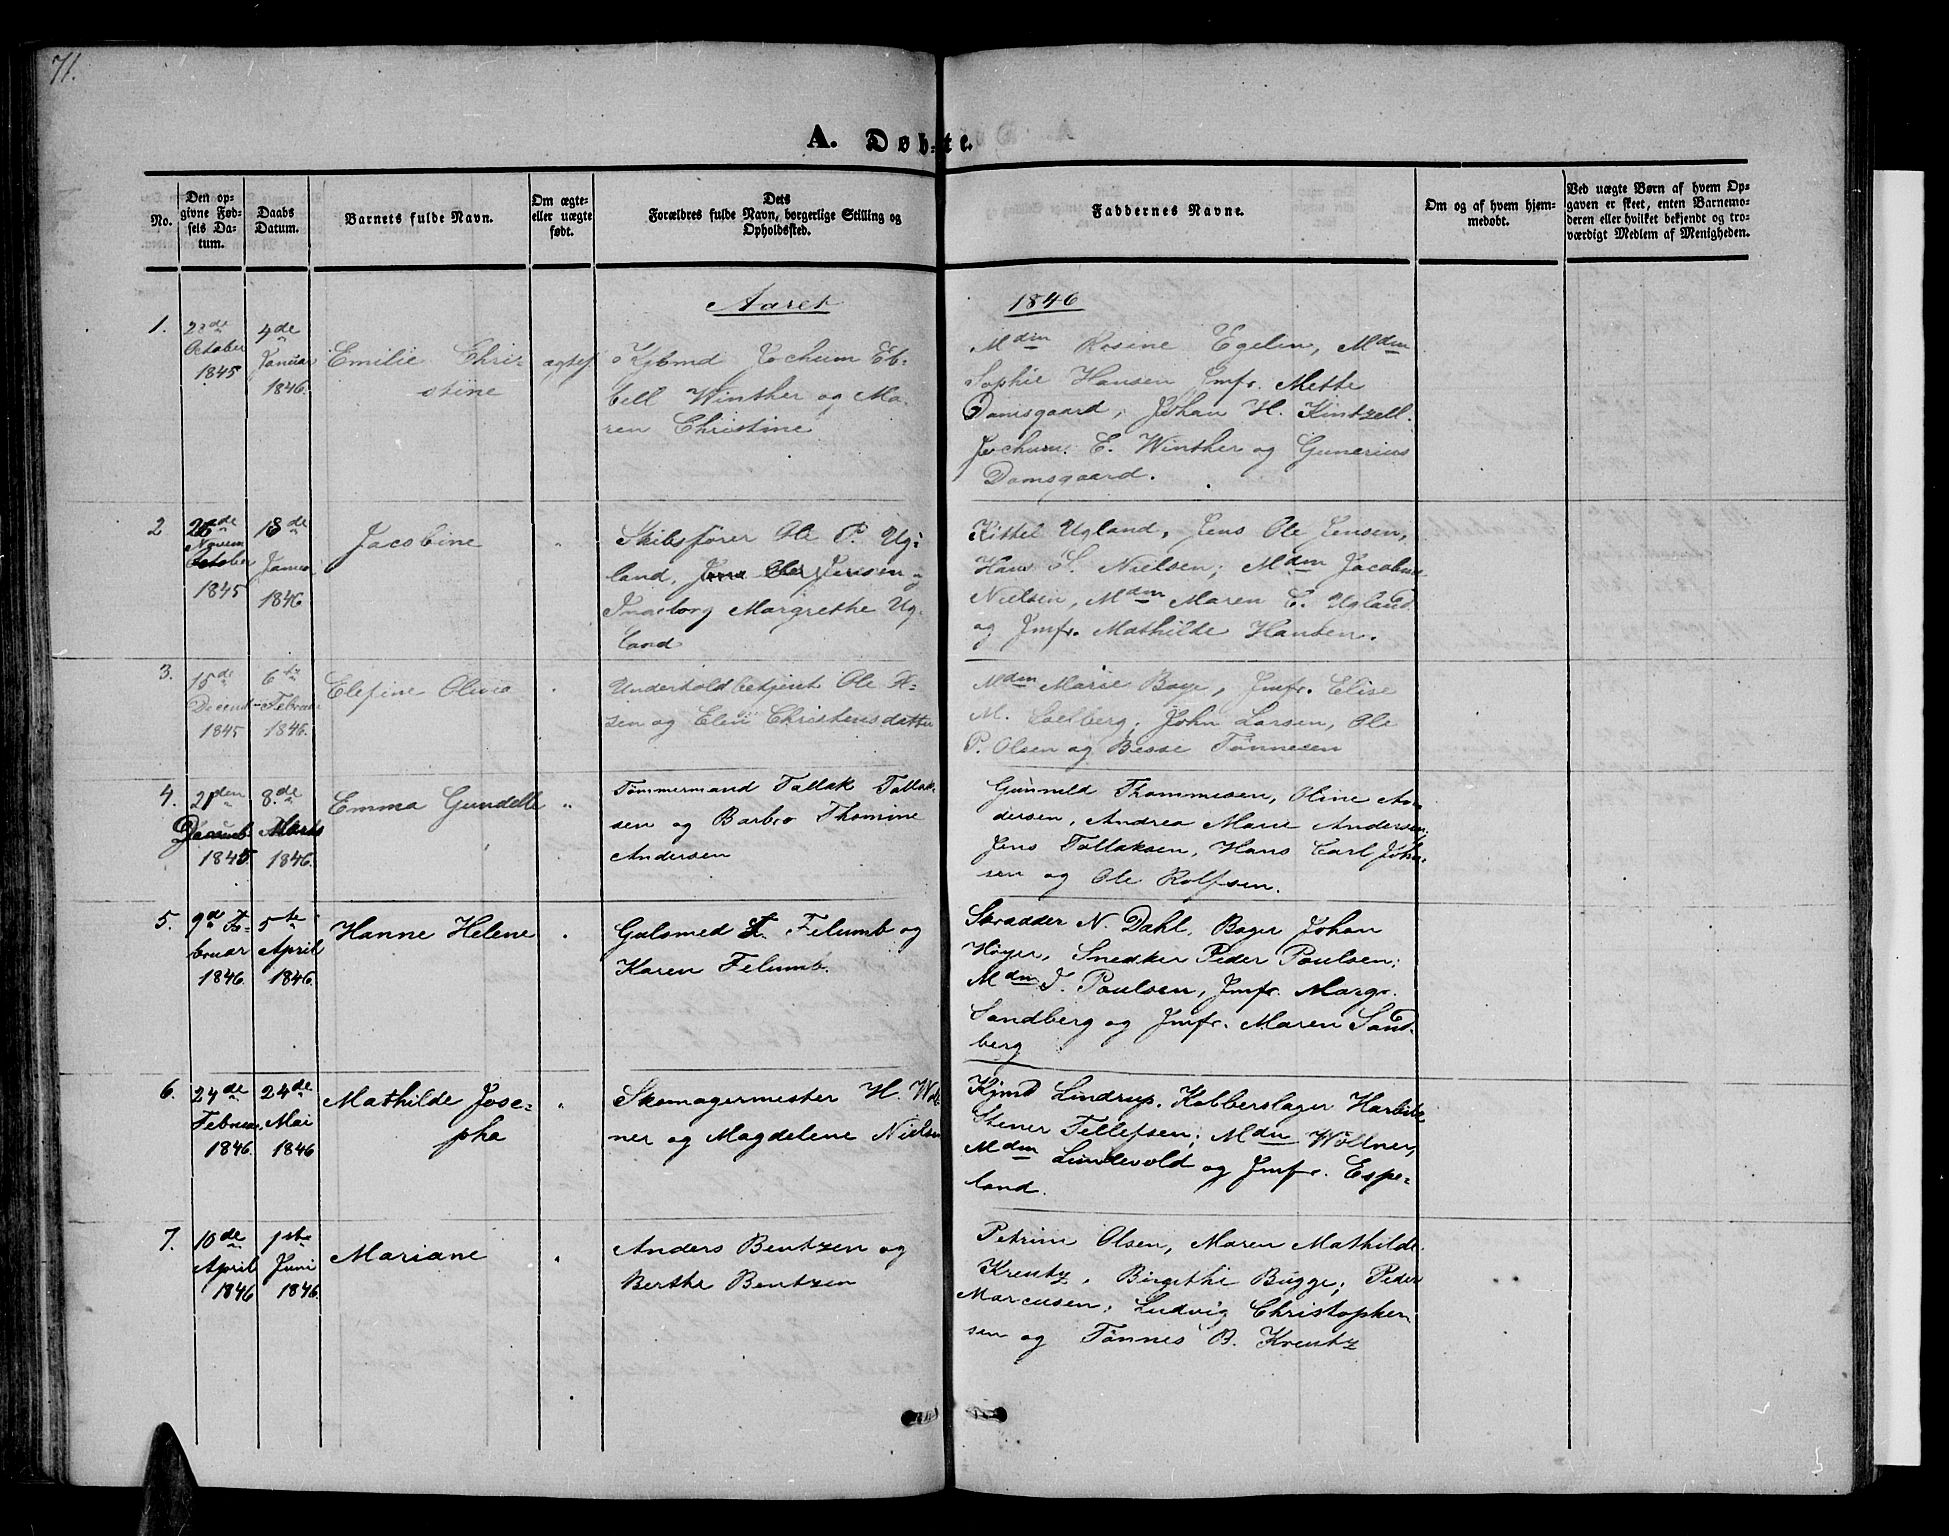 71.
A. Døbte.
No.
Den op-
givne Fød-
sels Da-
tum.
Daabs
Datum.
Barnets fulde Navn.
Om ægte-
eller uægte
født.
Dets
Forældres fulde Navn, borgerlige Stilling og
Opholdssted.
Faddernes Navne.
Om og af hvem hjem-
medøbt.
Ved uægte Børn af hvem Op-
gaven er skeet, enten Barnemo-
deren eller hvilket bekjendt og tro-
værdigt Medlem af Menigheden.
Aaret 1846
1.
28de
October
1845
4de
Januar
1846.
Emilie Chri-
stine
ægtef.
Kjbmd Jochum Eb-
bell Winther og Ma-
ren Christine
Mdm Rosine Egelin, Mdm
Sophie Hansen Jmfr. Mette
Damsgaard, Johan H. Kintzell.
Jochum E. Winther og Gunerius
Damsgaard.
2
26de
Novem
October
1845
18de
Januar
1846
Jacobine
"
Skibsfører Ole P. Ug-
land, Jens Ole Jensen og
Ingeborg Margrethe Ug-
land
Kittel Ugland, Jens Ole Jensen,
Hans S. Nielsen; Mdm Jacobine
Nielsen, Mdm Maren C. Ugland
og Jmfr. Mathilde Hansen.
3.
15de
Decemb
1845
6te
Februar
1846.
Elefine Olivia
"
Underto­ldbetjent Ole A-
sen og Elen Christensdatter
Mdm Marie Boye, Jmfr. Elise
M. Salberg; John Larsen, Ole
P. Olsen og Besse Tønnesen
4.
21den
Decemb
1845
8de
Marts
1846.
Emma Gundelle
"
Tømmermand Tallak Tallak-
sen og Barbro Thomine
Andersen
Gunnild Thommesen, Oline An-
dersen, Andrea Marie Andersen;
Jens Tallaksen, Hans Carl John-
sen og Ole Rolfsen.
5.
9de Fe-
bruar
1846.
5te
April
1846.
Hanne Helene
"
Gulsmed F. Felumb og
Karen Felumb.
Skrædder N. Dahl, Bager Johan
Høyer, Snedker Peder Poulsen;
Mdm J. Poulsen, Jmfr. Margr.
Sandberg og Jmfr. Maren Sand-
berg
6.
24de
Februar
1846.
24de
Mai
1846
Mathilde Jose-
pha
"
Skomagermester H. Wöll-
ner og Magdelene Nielsen
Kjmd Lindrup, Kobberslager Harbitz
Stener Tellefsen; Mdm Wöllner,
Mdm Lundevold og Jmfr. Espe-
land.
7.
10de
April
1846
1ste
Juni
1846.
Mariane
"
Anders Bentzen og
Berthe Bentzen
Petrine Olsen, Maren Mathilde
Kreutz, Birgithe Bugge; Peder
Marcusen, Ludvig Christophen-
sen og Tønnes B. Kreutz